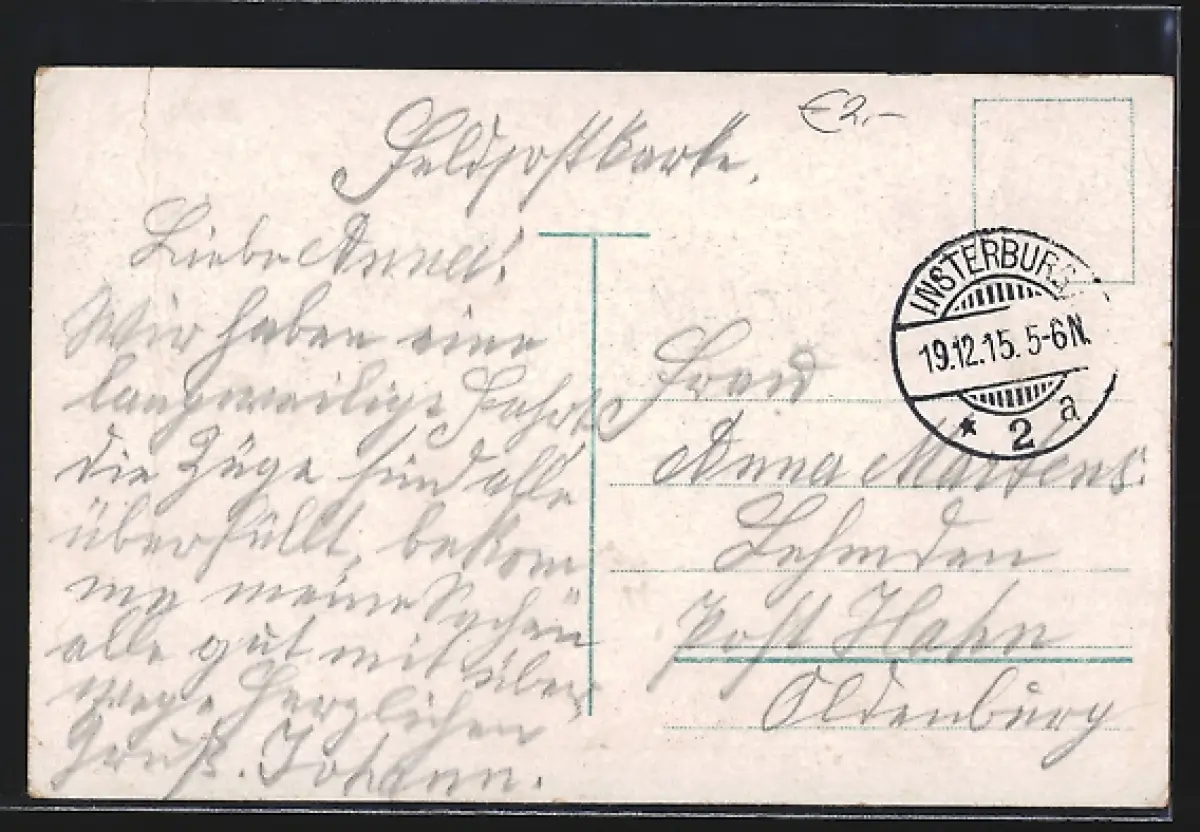 €2,-
Feldpostkarte.
Liebe Anna!
Wir haben eine
langweilige Fahrt
die Züge sind alle
überfüllt, bekom
me meine Sachen
alle gut mit über
wege Herzlichen
Gruß. Johann.
INSTERBURG
19.12.15. 5-6N.
* 2 a
Frau
Anna Martens.
Lehmden
Post Hahn
Oldenburg